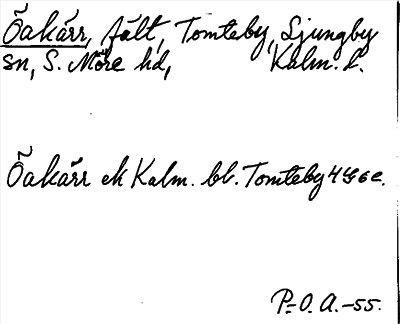 Õakärr, fält, Tomteby, Ljungby
sn, S. Möre hd, Kalm. l.
Õakärr ek Kalm. bl. Tomteby 4 G 6 e.
P.-O. A. -55.